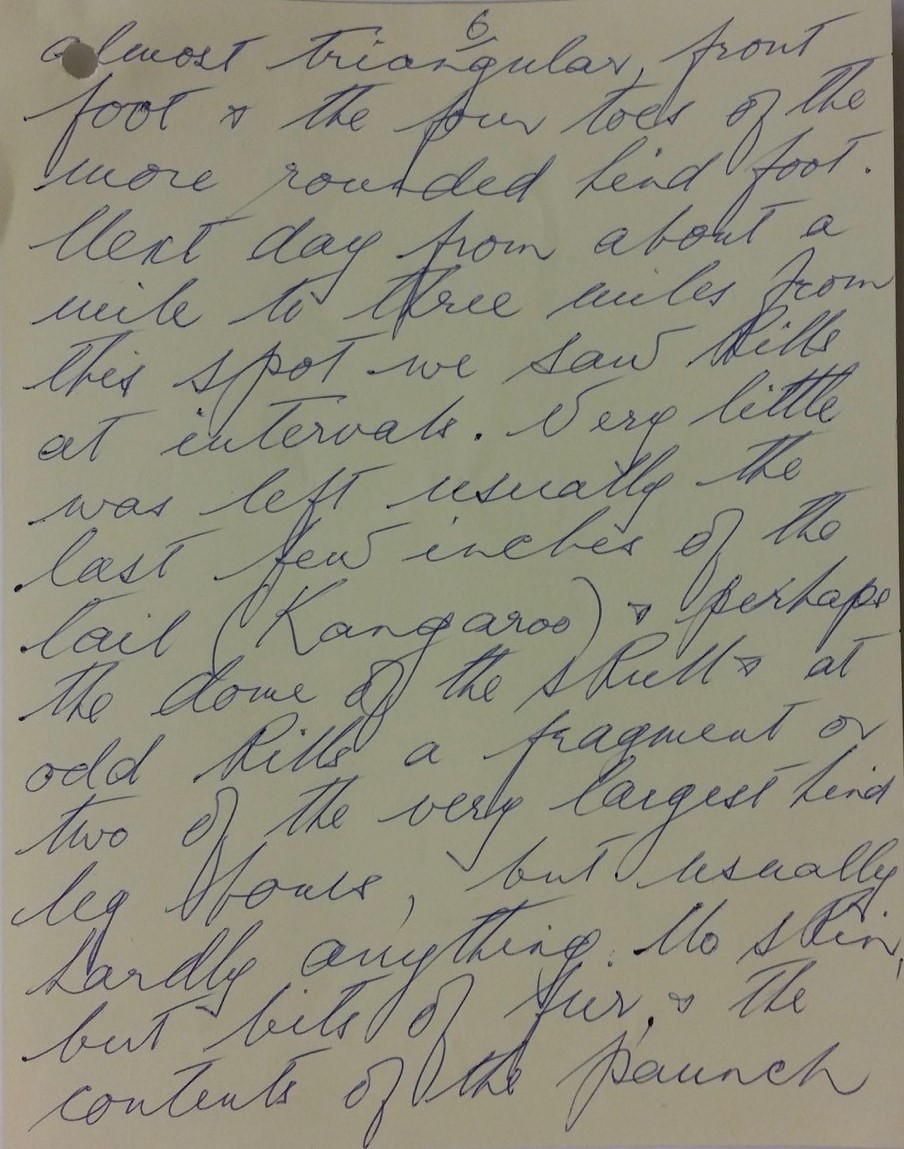 6
almost triangular, front
foot & the four toes of the
more rounded hind foot.
Next day from about a
mile to three miles from
this spot we saw kills
at intervals. Very little
was left usually the
last few inches of the
tail (Kangaroo) & perhaps
the dome of the skull & at
odd kills a fragment or
two of the very largest hind
leg bones, but usually
hardly anything. No skin,
but bits of fur, & the
contents of the paunch